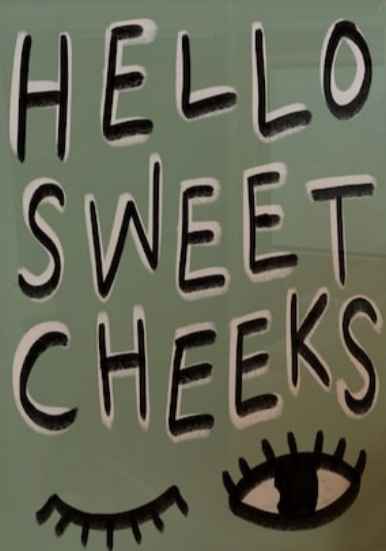 HELLO
SWEET
CHEEKS